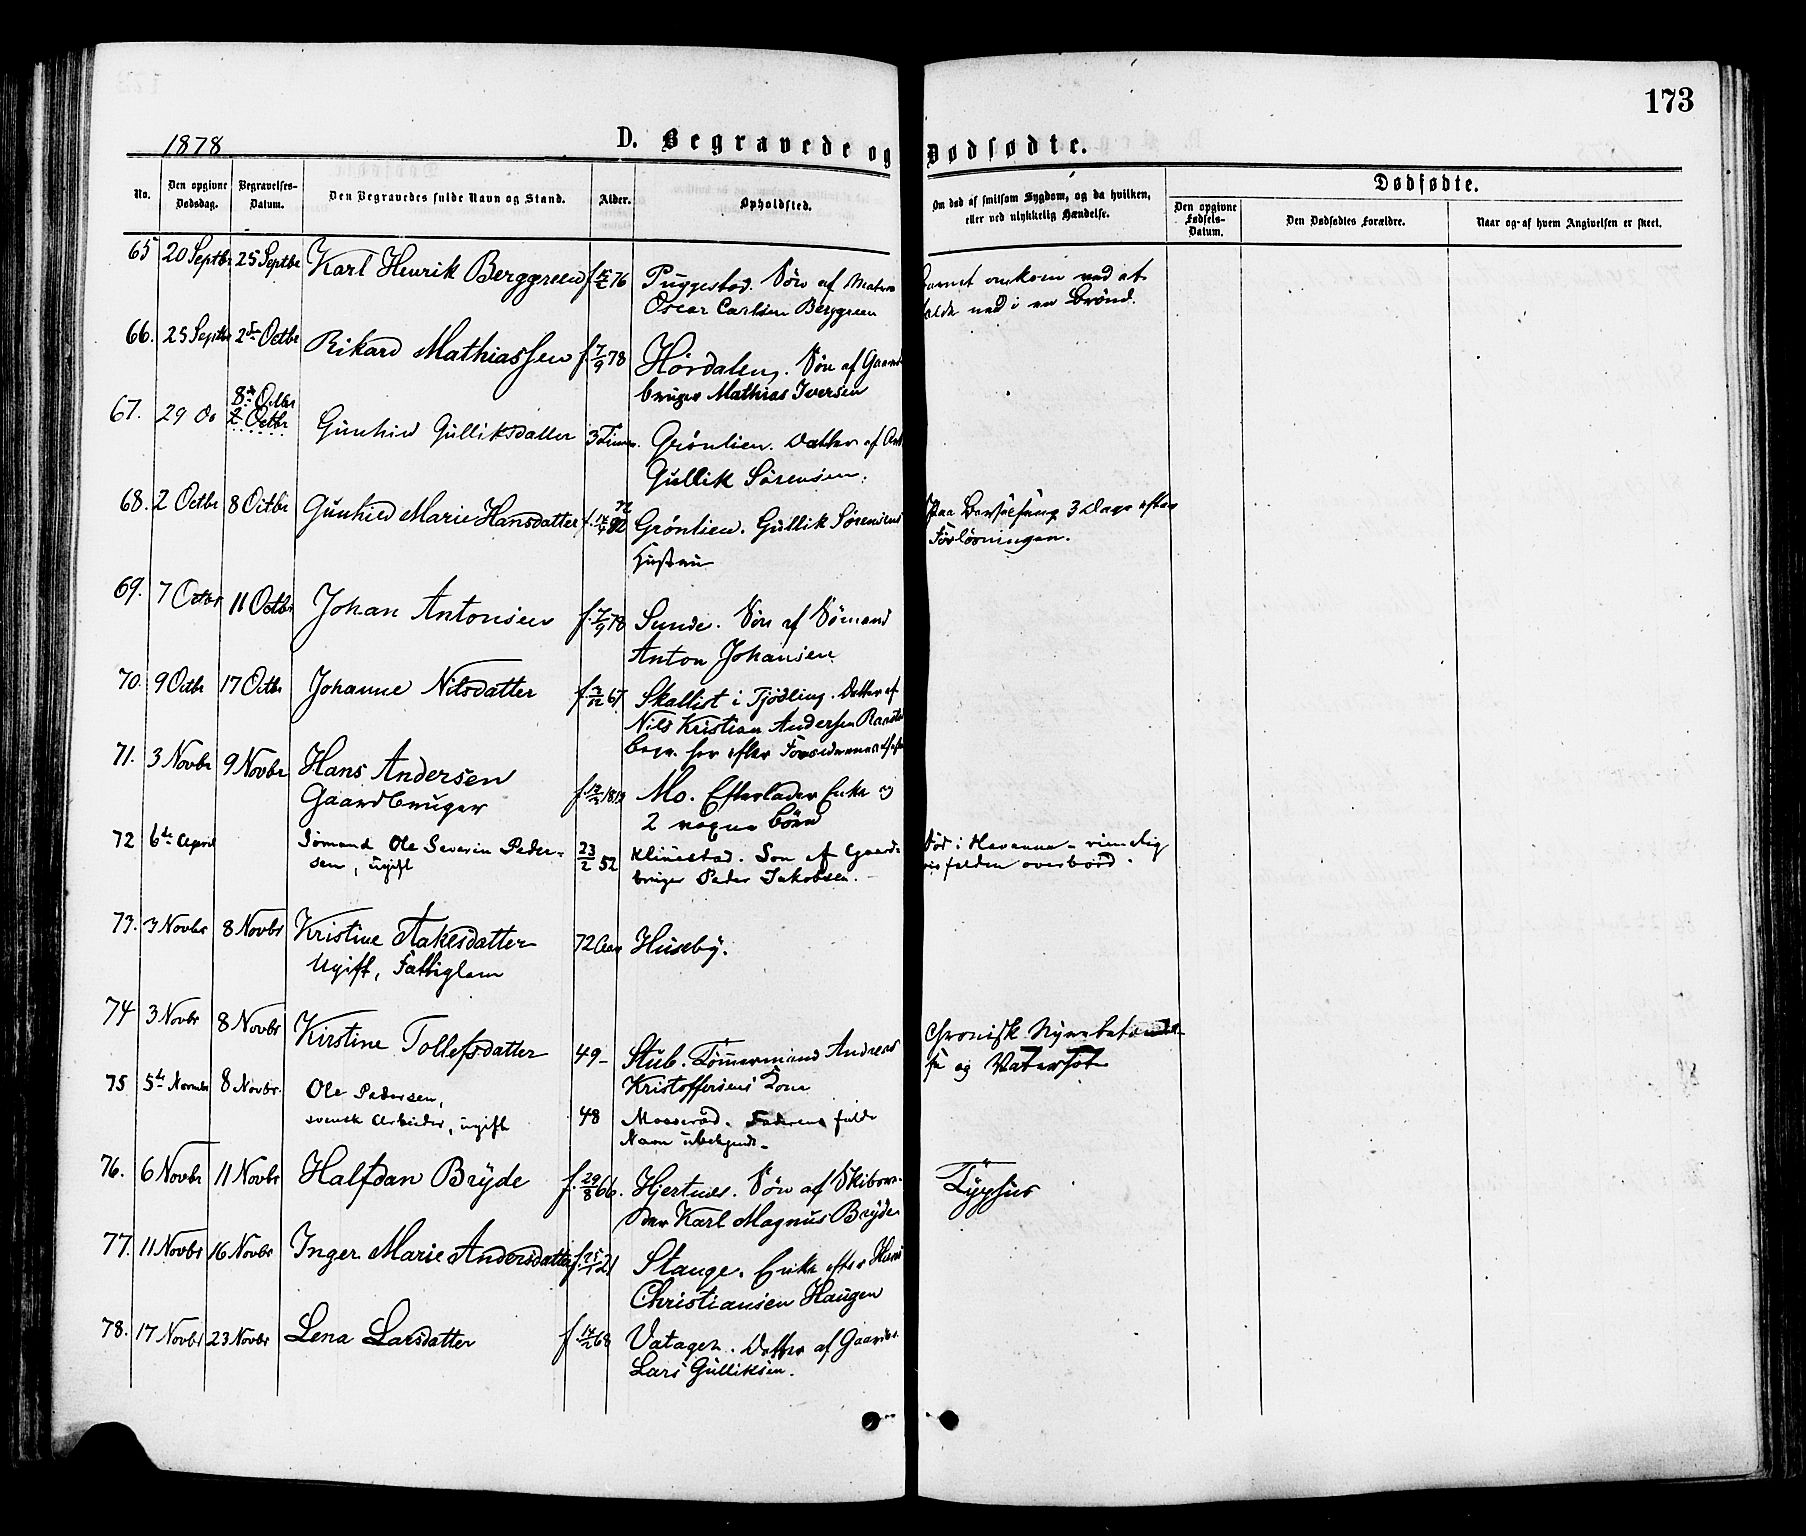 173
1878
D. Begravede og Dødfødte.
No.
Den opgivne Dødsdag.
Begravelses-Datum.
Den Begravedes fulde Navn og Stand.
Alder.
Opholdsted.
Om død af smitsom Sygdom, og da hvilken, eller ved ulykkelig Hændelse.
Dødfødte.
Den opgivne Fødsels-Datum.
Den Dødfødtes Forældre.
Naar og af hvem Angivelsen er skeet.
65 20 Septbr 25 Septbr Karl Henrik Berggreen f. 76 Puggestad. Søn af Matros
Oscar Carlsen Berggreen
Barnet omkom ved at
falde ned i en Brønd.
66. 25 Septbr 2den Octbr Rikard Mathiassen f. 7/9 78 Hørdalen. Søn af Gaard-
bruger Mathias Iversen
8de Octbr
67. 29 do 2 Octbr Gunhild Gulliksdatter 3 Timer. Grønlien. Datter af
Gullik Sørensen.
68. 2 Octbr 8 Octbr Gunhild Marie Hansdatter f. Grønlien. Gullik Sørensens
Hustru
Paa Barselseng 3 Dage efter
Forløsningen.
69. 7 Octbr 11 Octbr Johan Antonsen f. 7/9 78 Sunde. Søn af Sømand
Anton Johansen
70. 9 Octbr 17 Octbr Johanne Nilsdatter f. 67 Skallist i Tjødling. Datter af
Nils Kristian Andersen
Begr. her efter
71. 3 Novbr 9 Novbr Hans Andersen
Gaardbruger
f. Mo. Efterlader Enke og
2 voxne Børn
72 6te April Sømand Ole Severin Peder-
sen, ugift
23/2 52 Klinestad. Søn af Gaard-
bruger Peder Jakobsen.
Død i Havanna - rimelig
vis falden overbord.
73. 3 Novbr 8 Novbr Kristine Aakesdatter
Ugift, Fattiglem
72 Aar Huseby.
74 3 Novbr 8 Novbr Kirstine Tollefsdatter 49 - Stub. Tømmermand Andreas
Kristoffersens Kone
Chronisk Nyrebetændel-
se og Vatersot
75 5te Novembr 8 Novbr. Ole Pedersen,
svensk Arbeider, ugift
48 Moaserød. Faderens fulde
Navn ubekjendt.
76. 6 Novbr 11 Novbr Halfdan Bryde f. 29/8 66. Hjertnes. Søn af Skibsre-
der Karl Magnus Bryde
Typhus
77. 11 Novbr 16 Novbr Inger Marie Andersdatter f. 25/1 21 Stange. Enke efter Hans
Christiansen Haugen
78. 17 Novbr 23 Novbr Lena Larsdatter f. 68 Vatager. Datter af Gaardbr.
Lars Gulliksen.